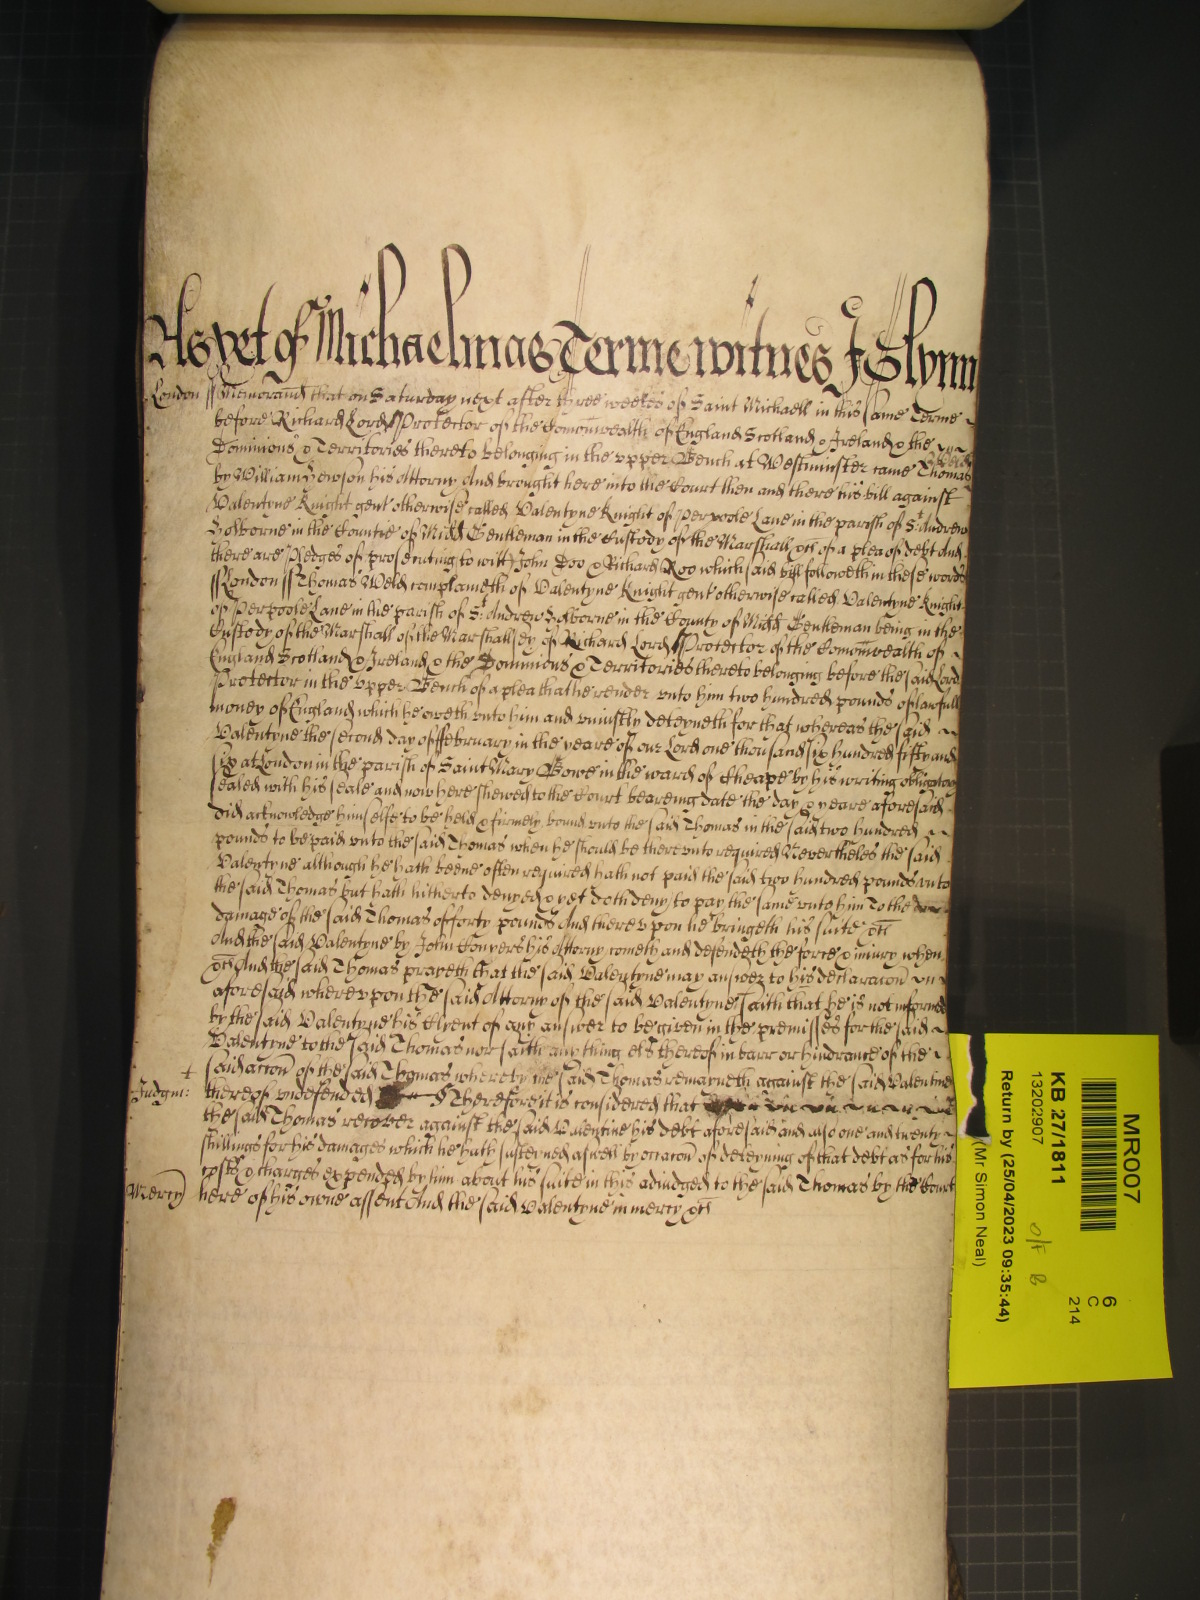 As yet of Michaelmas Terme witnes J Glynn
London ss Memorand that on Saturday next after three weekes of Saint Michaell in this same Terme
before Richard Lord Protector of the Comonwealth of England Scotland & Ireland & the
Dominions & Territories thereto belonging in the vpper Bench at Westminster came Thomas Weld
by William Hewson his Attorny And brought here into the Court then and there his bill against
Valentyne Knight gent otherwise called Valentyne Knight of Perpoole Lane in the parish of St Andrew
Holborne in the Countie of Midd Gentleman in the Custody of the Marshall &c of a plea of debt And
there are Pledges of prosecuting to witt John Doo & Richard Roo which said bill followeth in these words
ss London ss Thomas Weld complaineth of Valentyne Knight gent otherwise called Valentyne Knight
of Perpoole Lane in the parish of St Andrew Holborne in the County of Midd Gentleman being in the
Custody of the Marshall of the Marshallsey of Richard Lord Protector of the Comonwealth of
England Scotland & Ireland & the Dominions & Territories thereto belonging before the said Lord
Protector in the vpper Bench of a plea that he render vnto him two hundred pounds of lawfull
money of England which he oweth vnto him and vniustly deteyneth for that whereas the said
Valentyne the second day of ffebruary in the yeare of our Lord one thousand six hundred fifty and
six at London in the parish of Saint Mary Bowe in the ward of Cheape by his writing obligatory
sealed with his seale and now here shewed to the Court beareing date the day & yeare aforesaid
did acknowledge himselfe to be held & firmely bound vnto the said Thomas in the said two hundred
pounds to be paid vnto the said Thomas when he should be therevnto required Nevertheles the said
Valentyne although he hath beene often required hath not paid the said two hundred pounds vnto
the said Thomas but hath hitherto denyed & yet doth deny to pay the same vnto him To the
damage of the said Thomas of forty pounds And therevpon he bringeth his suite &c
And the said Valentyne by John Conyers his Attorny cometh and defendeth the force & iniury when
&c And the said Thomas prayeth that the said Valentyne may answer to his declaracon
aforesaid wherevpon the said Attorny of the said Valentyne saith that he is not informed
by the said Valentyne his Clyent of any answer to be given in the premisses for the said
Valentyne to the said Thomas nor saith any thing els thereof in barr or hindrance of the
said accon of the said Thomas whereby the said Thomas remayneth against the said Valentine
Judgmt: thereof vndefended Therefore it is considered that
the said Thomas recover against the said Valentine his debt aforesaid and also one and twenty
shillings for his damages which he hath susteyned aswell by occacon of deteyning of that debt as for his
costs & charges expended by him about his suite in this adiudged to the said Thomas by the Court
Mercy here of his owne assent And the said Valentyne in mercy &c
MR007
6
C
214
KB 27/1811
13202907
O/F B
Return by (25/04/2023 09:35:44)
(Mr Simon Neal)